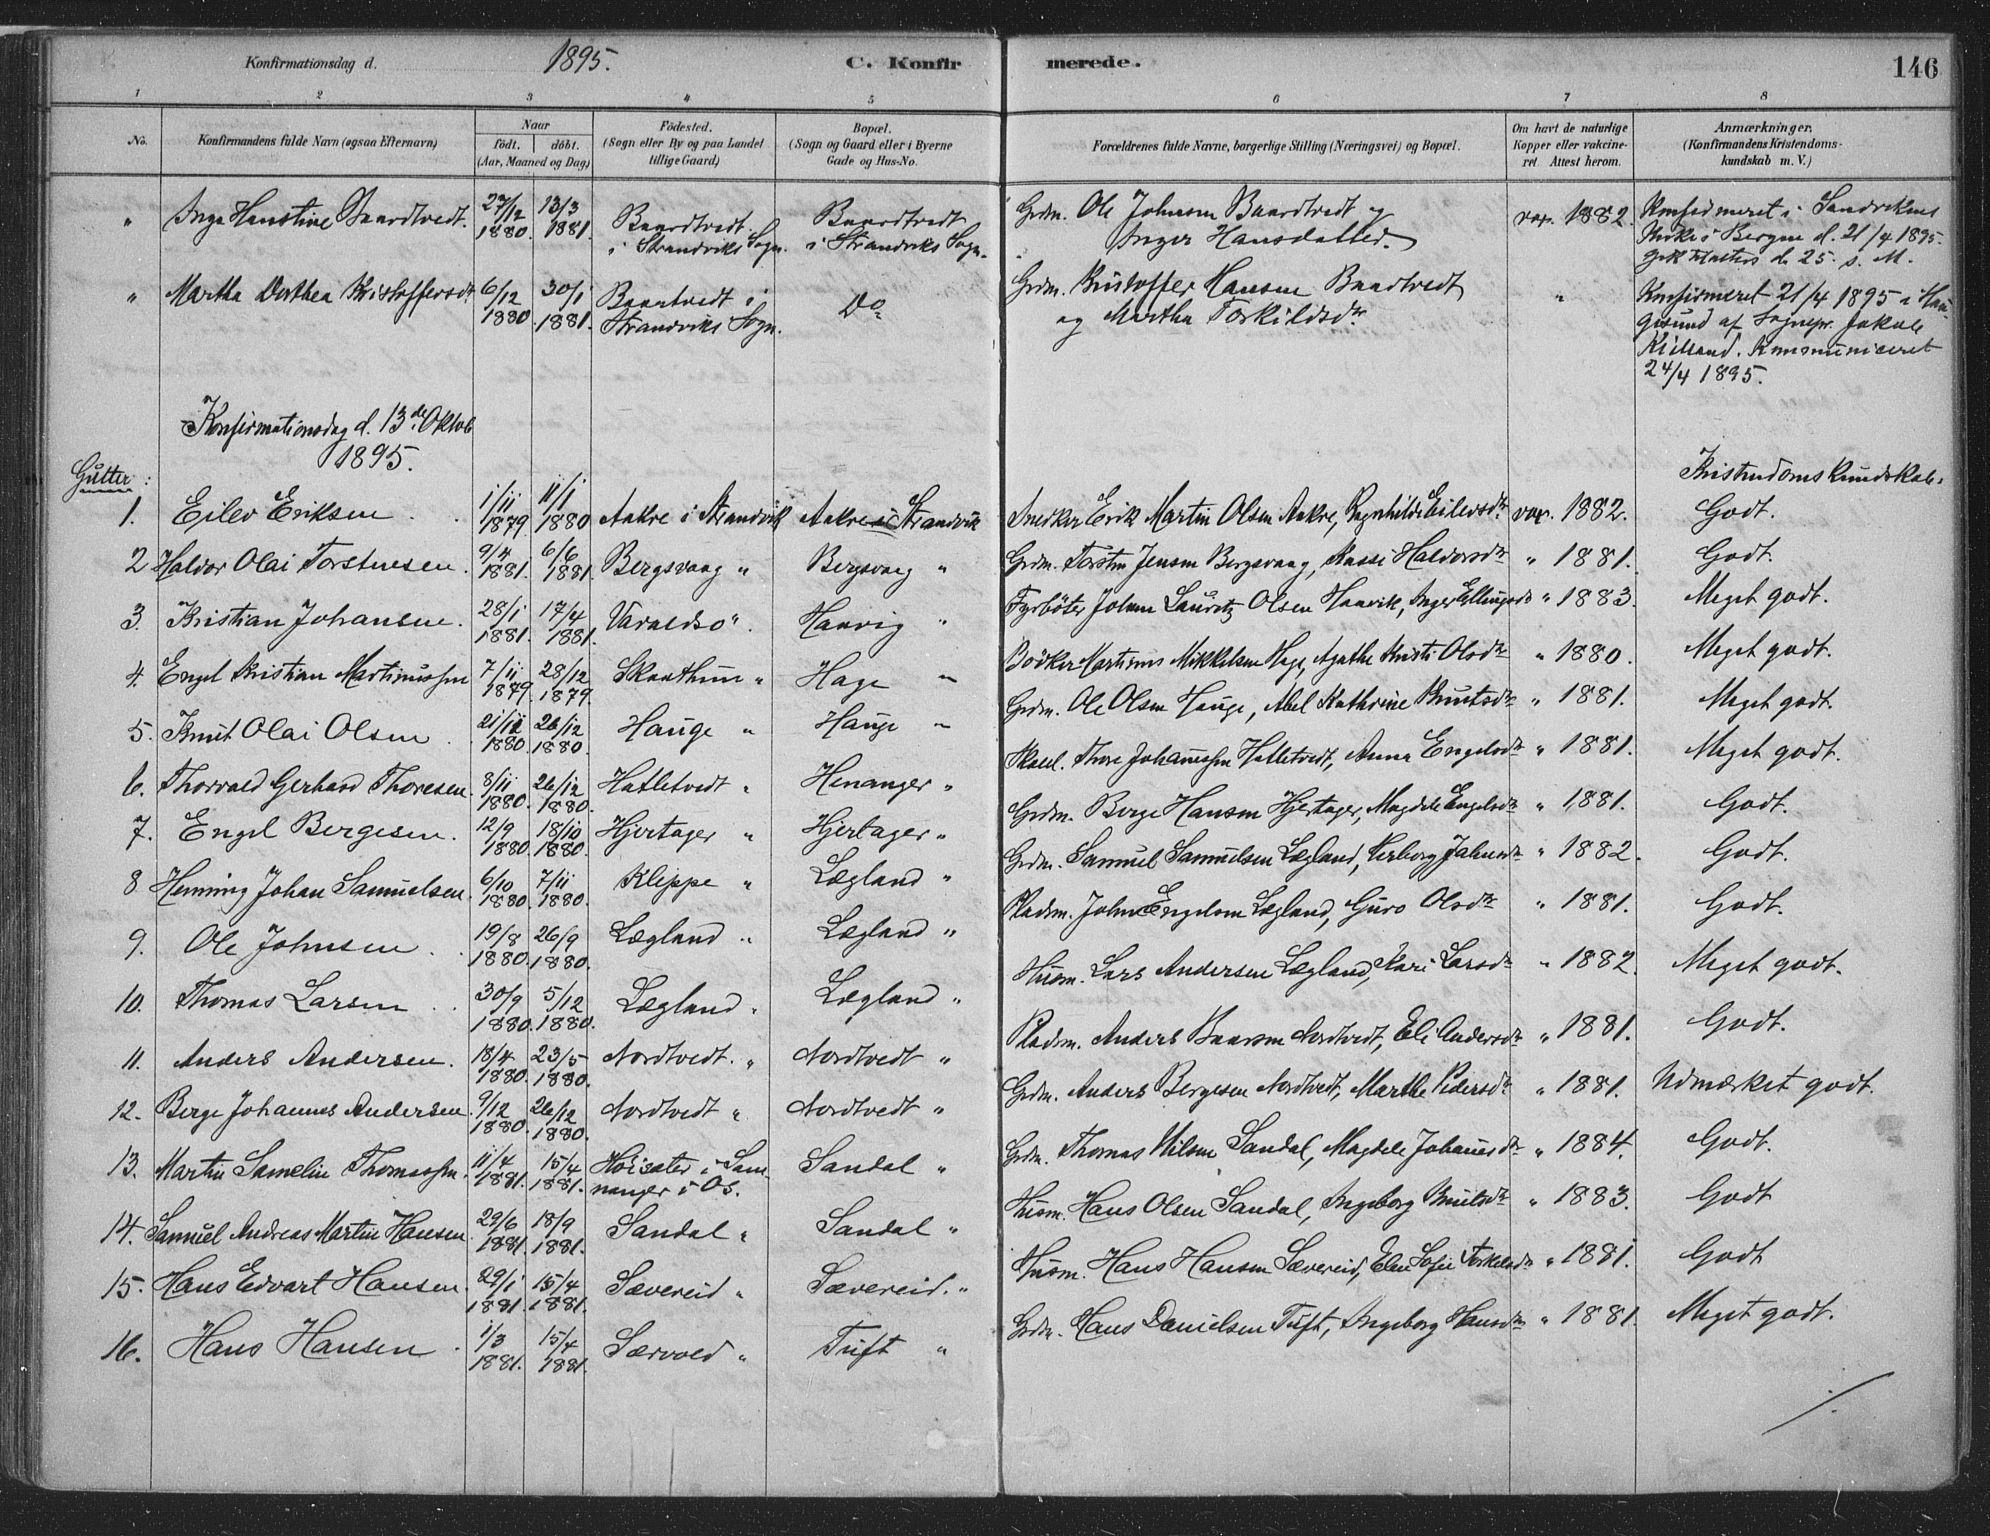 Konfirmationsdag d. 1895. C. Konfirmerede. 146
1 2 3 4 5 6 7 8
No. Konfirmandens fulde Navn (ogsaa Efternavn) Naar født. døbt. (Aar, Maaned og Dag) Fødested. (Sogn eller By og paa Landet tillige Gaard) Bopæl. (Sogn og Gaard eller i Byerne Gade og Hus-No. Forældrenes fulde Navne, borgerlige Stilling (Næringsvei) og Bopæl. Om havt de naturlige Kopper eller vakcineret. Attest herom. Anmærkninger. (Konfirmandens Kristendomskundskab m. V.)
" Inga Hanstine Baardtvedt. 27/12 1880. 13/3 1881. Baardtvedt i Strandviks Sogn. Baardtvedt i Strandviks Sogn. Grdm. Ole Johnsen Baardtvedt og Inger Hansdatter. vax. 1882. Konfirmeret i Sandvikens Kirke i Bergen d. 21/4 1895. d. 25. s. M.
" Martha Dorthea Kristoffersdr 6/12 1880 30/1 1881. Baartvedt i Strandviks Sogn. Do Grdm. Kristoffer Hansen Baadtvedt og Martha Torkildsdr. " Konfirmeret 21/4 1895 i Haugesund af Sognepr. Jakob Kielland. Kommuniceret 24/4 1895.
Konfirmationsdag d. 13de Oktob 1895.
Gutter: Kristendomskundskab.
1. Eilev Eriksen. 1/11 1879. 11/1 1880 Aakre i Strandvik Aakre i Strandvik Snedker Erik Martin Olsen Aakre, Ragnhilde Eilevsdr vax. 1882. Godt.
2 Haldor Olai Torstensen. 9/4 1881. 6/6 1881. Bergsvaag " Bergsvaag " Grdm. Torsten Jensen Bergsvaag, Haldorsdr " 1881. Godt.
3. Kristian Johansen. 28/1 1881. 17/4 1881. Varaldsø " Haavig " Fyrbøter Johan Lauritz Olsen Haavik, Inger Ellingsdr " 1883. Meget godt.
4. Engel Kristian Martinussen 7/11 1879. 28/12 1879. Skaathun " Hage " Bødker Martinus Mikkelsen Hage, Agathe Kristi Olsdr " 1880. Meget godt.
5. Knut Olai Olsen 21/11 1880. 26/12 1880. Hauge " Hauge " Grdm. Ole Olsen Hauge, Abel Kathrine Knutsdr " 1881. Meget godt.
6. Thorvald Gerhard Thoresen. 8/11 1880. 26/12 1880. Hatletvedt " Henanger " Thore Johannessen Hatletvedt, Anna Engelsdr " 1881. Meget godt.
7. Engel Bergesen. 12/9 1880. 18/10 1880. Hjertager " Hjertager " Grdm. Berge Hansen Hjertager, Magdele Engelsdr " 1881. Godt.
8 Henning Johan Samuelsen. 6/10 1880. 7/11 1880. Kleppe " Lægland " Grdm. Samuel Samuelsen Lægland, Johnsdr " 1882. Godt.
9. Ole Johnsen. 19/8 1880. 26/9 1880. Lægland " Lægland " Pladsm. John Engelsen Lægland, Guro Olsdr " 1881. Godt.
10. Thomas Larsen. 30/9 1880. 5/12 1880. Lægland " Lægland " Husm. Lars Andersen Lægland, Kari Larsdr " 1882. Meget godt.
11. Anders Andersen. 18/4 1880. 23/5 1880. Nordtvedt. " Nordtvedt " Pladsm. Anders Baarsen Nordtvedt, Eli Andersdr " 1881. Godt.
12. Berge Johannes Andersen. 9/12 1880. 26/12 1880. Nordtvedt " Nordtvedt " Grdm. Anders Bergesen Nordtvedt, Marthe Pedersdr " 1881. Udmærket godt.
13. Martin Samelin Thomassen. 11/4 1881. 15/4 1881. Høisæter i Samnanger i Os. Sandal " Grdm. Thomas Nilsen Sandal, Magdele Johannesdr " 1884. Godt.
14. Samuel Andreas Martin Hansen 29/6 1881. 18/9 1881. Sandal " Sandal " Husm. Hans Olsen Sandal, Ingeborg Knutsdr " 1883. Godt
15. Hans Edvart Hansen. 29/1 1881. 15/4 1881. Sævereid " Sævereid. " Husm. Hans Hansen Sævereid, Elen Sofie Torkelsdr " 1881. Godt
16. Hans Hansen. 1/3 1881. 15/4 1881. Særvold " Tuft " Grdm. Hans Danielsen Tuft, Ingeborg Hansdr " 1881. Meget godt.